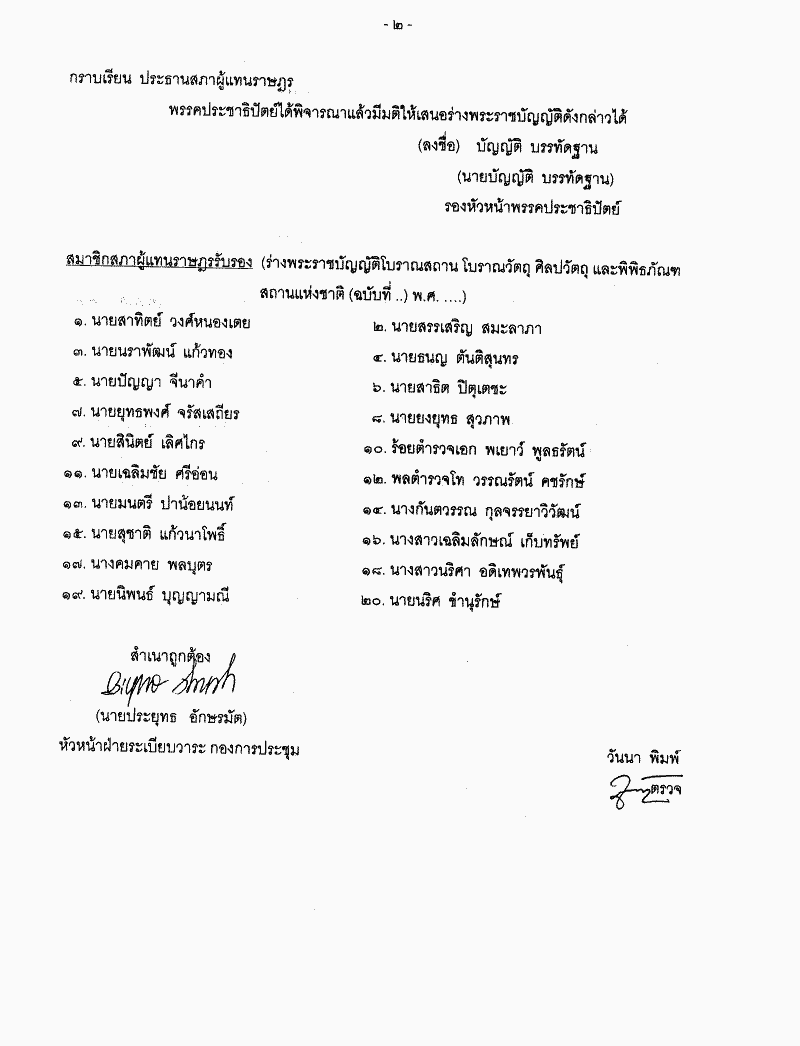 - ๒ -
กราบเรียน ประธานสภาผู้แทนราษฎร
พรรคประชาธิปัตย์ได้พิจารณาแล้วมีมติให้เสนอร่างพระราชบัญญัติดังกล่าวได้
(ลงชื่อ) บัญญัติ บรรทัดฐาน
(นายบัญญัติ บรรทัดฐาน)
รองหัวหน้าพรรคประชาธิปัตย์
สมาชิกสภาผู้แทนราษฎรรับรอง (ร่างพระราชบัญญัติโบราณสถาน โบราณวัตถุ ศิลปวัตถุ และพิพิธภัณฑ
สถานแห่งชาติ (ฉบับที่ ..) พ.ศ. ....)
๑. นายสาทิตย์ วงศ์หนองเตย ๒. นายสรรเสริญ สมะลาภา
๓. นายนราพัฒน์ แก้วทอง ๔. นายธนญ ตันติสุนทร
๕. นายปัญญา จีนาคำ ๖. นายสาธิต ปิตุเตชะ
๗. นายยุทธพงศ์ จรัสเสถียร ๘. นายยงยุทธ สุวภาพ
๙. นายสินิตย์ เลิศไกร ๑๐. ร้อยตำรวจเอก พเยาว์ พูลธรัตน์
๑๑. นายเฉลิมชัย ศรีอ่อน ๑๒. พลตำรวจโท วรรณรัตน์ คชรักษ์
๑๓. นายมนตรี ปาน้อยนนท์ ๑๔. นางกันตวรรณ กุลจรรยาวิวัฒน์
๑๕. นายสุชาติ แก้วนาโพธิ์ ๑๖. นางสาวเฉลิมลักษณ์ เก็บทรัพย์
๑๗. นางคมคาย พลบุตร ๑๘. นางสาวนริศา อดิเทพวรพันธุ์
๑๙. นายนิพนธ์ บุญญามณี ๒๐. นายนริศ ขำนุรักษ์
สำเนาถูกต้อง
(นายประยุทธ อักษรมัต)
หัวหน้าฝ่ายระเบียบวาระ กองการประชุม
วันนา พิมพ์
ตรวจ